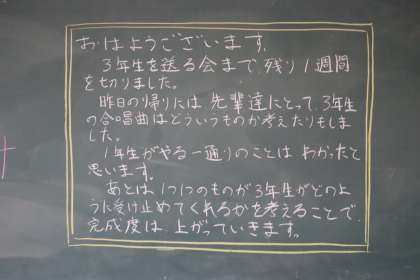 おはようございます。
3年生を送る会まで、残り1週間
を切りました。
昨日の帰りには、先輩達にとって、3年生
の合唱曲はどういうものか考えたりもしま
した。
1年生がやる一通りのことは、わかったと
思います。
あとは、1つ1つのものが3年生がどのよ
うに受け止めてくれるかを考えることで、
完成度は、上がっていきます。